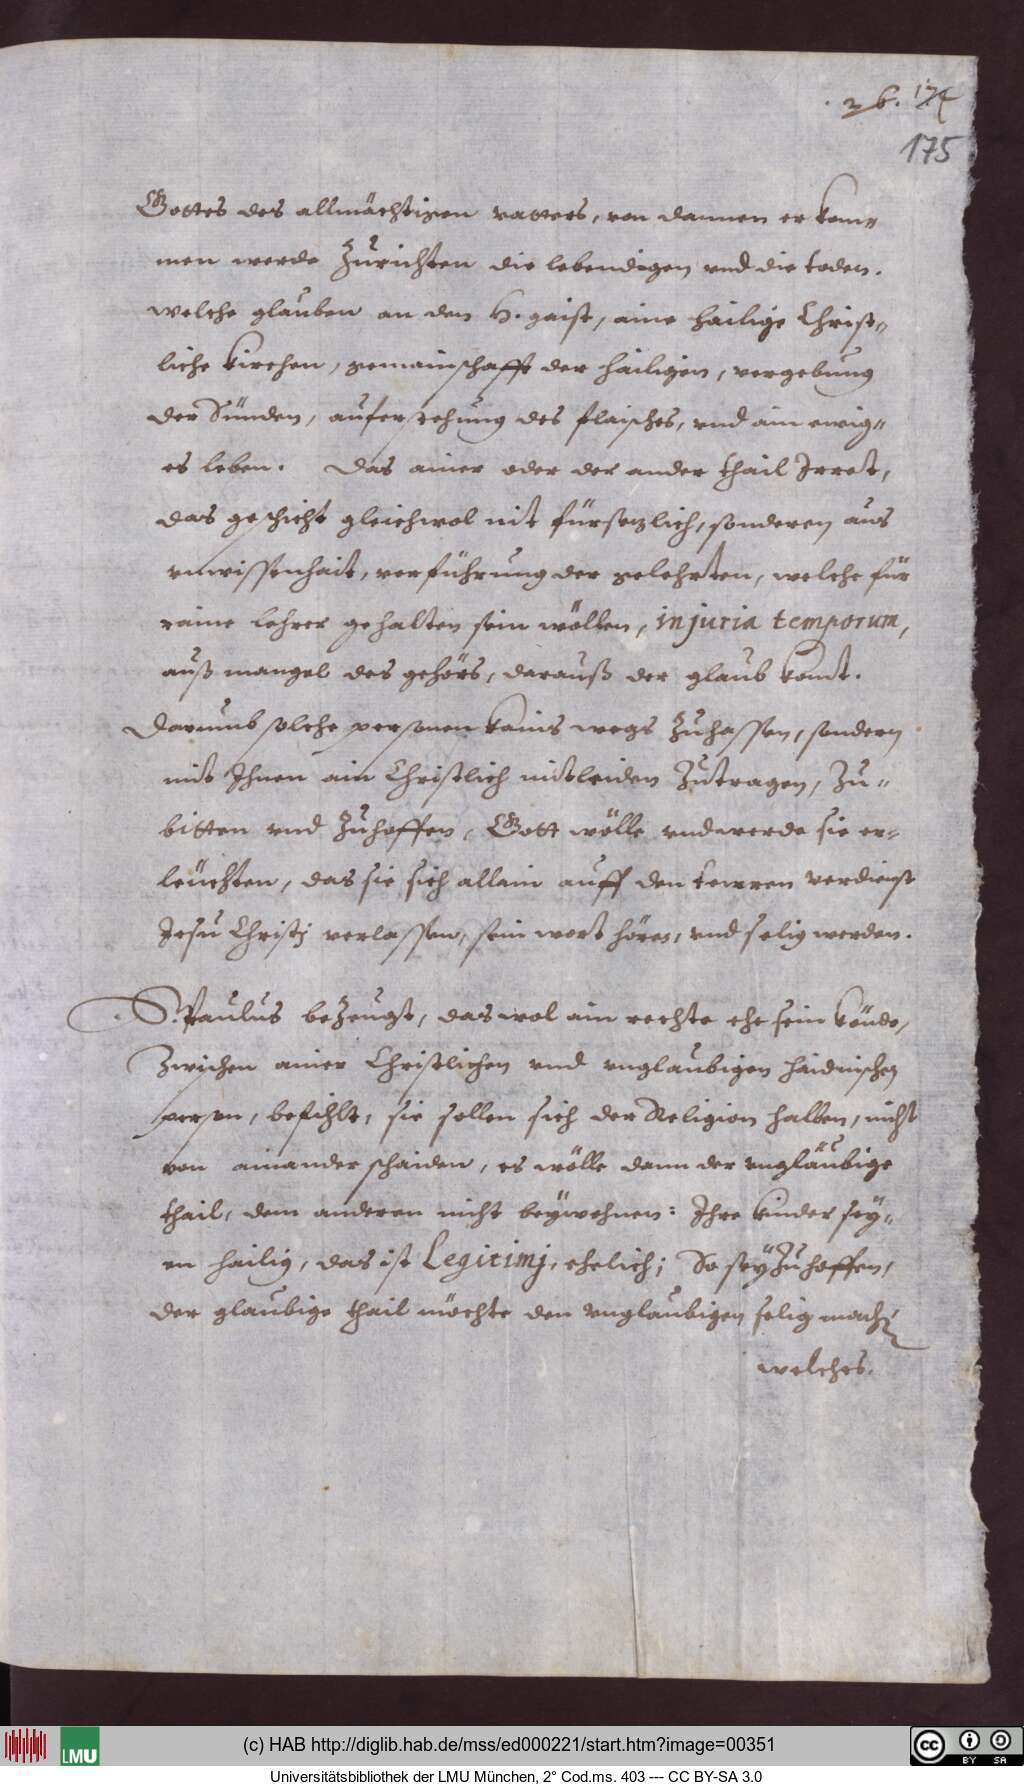 26. 174
175
Gottes des allmächtigen vatters, von dannen er kom=
men werde Zurichten die lebendigen vnd die toden.
welche glauben an den H. gaist, aine hailige Christ=
liche kirchen, gemainschafft der hailigen, vergebung
der Sünden, auferstehung des flaisches, vnd ain ewig=
es leben. Das ainer oder der ander thail Irret,
das geschicht gleichwol nit fürsezlich, sonderen aus
vnwissenhait, verführung der gelehrten, welche für
raine lehrer gehalten sein wöllen, injuria temporum,
auß mangel des gehörs, darauß der glaub komt.
Darumb solche personen kains wegs Zuhassen, sondern
mit Ihnen ain Christlich mitleiden Zutragen, Zu=
bitten vnd Zuhoffen, Gott wölle vnd werde sie er=
leüchten, das sie sich allain auff den teürren verdienst
Jesu Christj verlassen, sein wort hören, vnd selig werden.
S. Paulus beZeugt, das wol ain rechte ehe sein könde,
Zwischen ainer Christlichen vnd vnglaubigen haidnischen
person, befihlt, sie sollen sich der Religion halben, nicht
von ainander schaiden, es wölle dann der vngläubige
thail, dem anderen nicht beÿwohnen: Ihre kinder seÿ=
en hailig, das ist Legitimj, ehelich; So seÿ Zuhoffen,
der glaubige thail möchte den vnglaubigen selig machen
welches.
LMU
(c) HAB http://diglib.hab.de/mss/ed000221/start.htm?image=00351
CC BY SA
Universitätsbibliothek der LMU München, 2° Cod.ms. 403 --- CC BY-SA 3.0